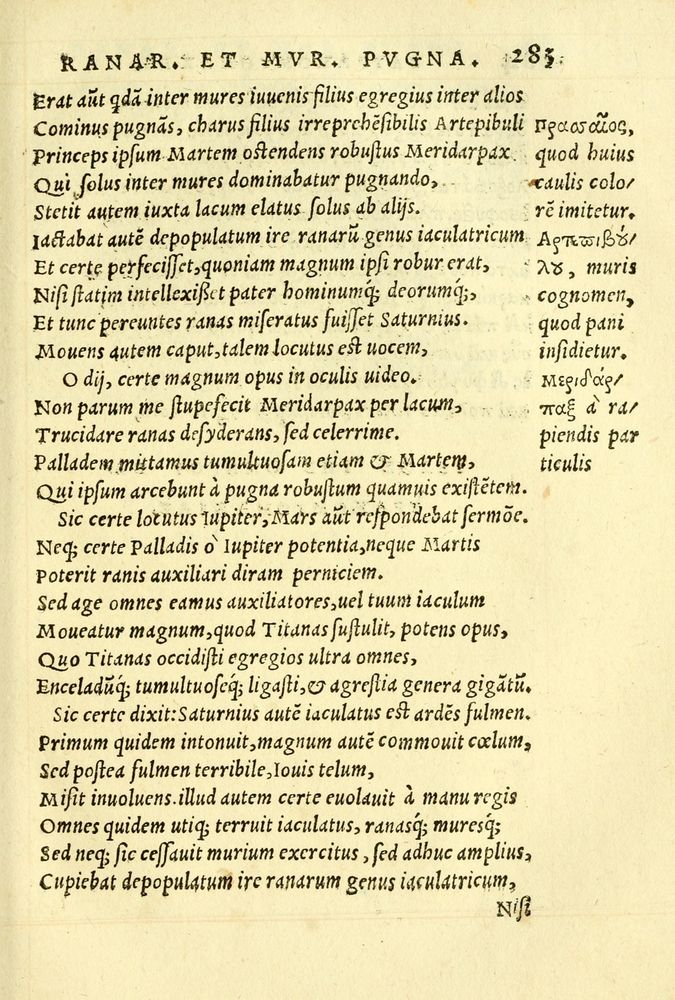 RANAR. ET MVR. PVGNA. 285.
Erat aũt qdã inter mures iuuenis filius egregius inter alios
Cominus pugnãs, charus filius irreprehẽsibilis Artepibuli
Princeps ipsum Martem ostendens robustus Meridarpax
Qui solus inter mures dominabatur pugnando,
Stetit autem iuxta lacum elatus solus ab alijs.
Iactabat autẽ depopulatum ire ranarũ genus iaculatricum
Et certe perfecisset, quoniam magnum ipsi robur erat,
Nisi statim intellexißet pater hominumq́; deorumq́;,
Et tunc pereuntes ranas miseratus fuisset Saturnius.
Mouens autem caput, talem locutus est uocem,
O dij, certe magnum opus in oculis uideo.
Non parum me stupefecit Meridarpax per lacum,
Trucidare ranas desyderans, sed celerrime.
Palladem mittamus tumultuosam etiam & Martem,
Qui ipsum arcebunt à pugna robustum quamuis existẽtem.
Sic certe locutus Iupiter, Mars aũt respondebat sermõe.
Neq; certe Palladis ò Iupiter potentia, neque Martis
Poterit ranis auxiliari diram perniciem.
Sed age omnes eamus auxiliatores, uel tuum iaculum
Moueatur magnum, quod Titanas sustulit, potens opus,
Quo Titanas occidisti egregios ultra omnes,
Enceladũq́; tumultuoseq́; ligasti, & agrestia genera gigãtũ.
Sic certe dixit: Saturnius autẽ iaculatus est ardẽs fulmen.
Primum quidem intonuit, magnum autẽ commouit cœlum,
Sed postea fulmen terribile, Iouis telum,
Misit inuoluens. illud autem certe euolauit à manu regis
Omnes quidem utiq; terruit iaculatus, ranasq́; muresq́;
Sed neq; sic cessauit murium exercitus, sed adhuc amplius,
Cupiebat depopulatum ire ranarum genus iaculatricum,
Nisi
πρασσαῖος,
quod huius
caulis colo/
rẽ imitetur.
Αρτεπιβȣ́/
λȣ, muris
cognomen,
quod pani
insidietur.
Μεριδάρ/
παξ à ra/
piendis par
ticulis